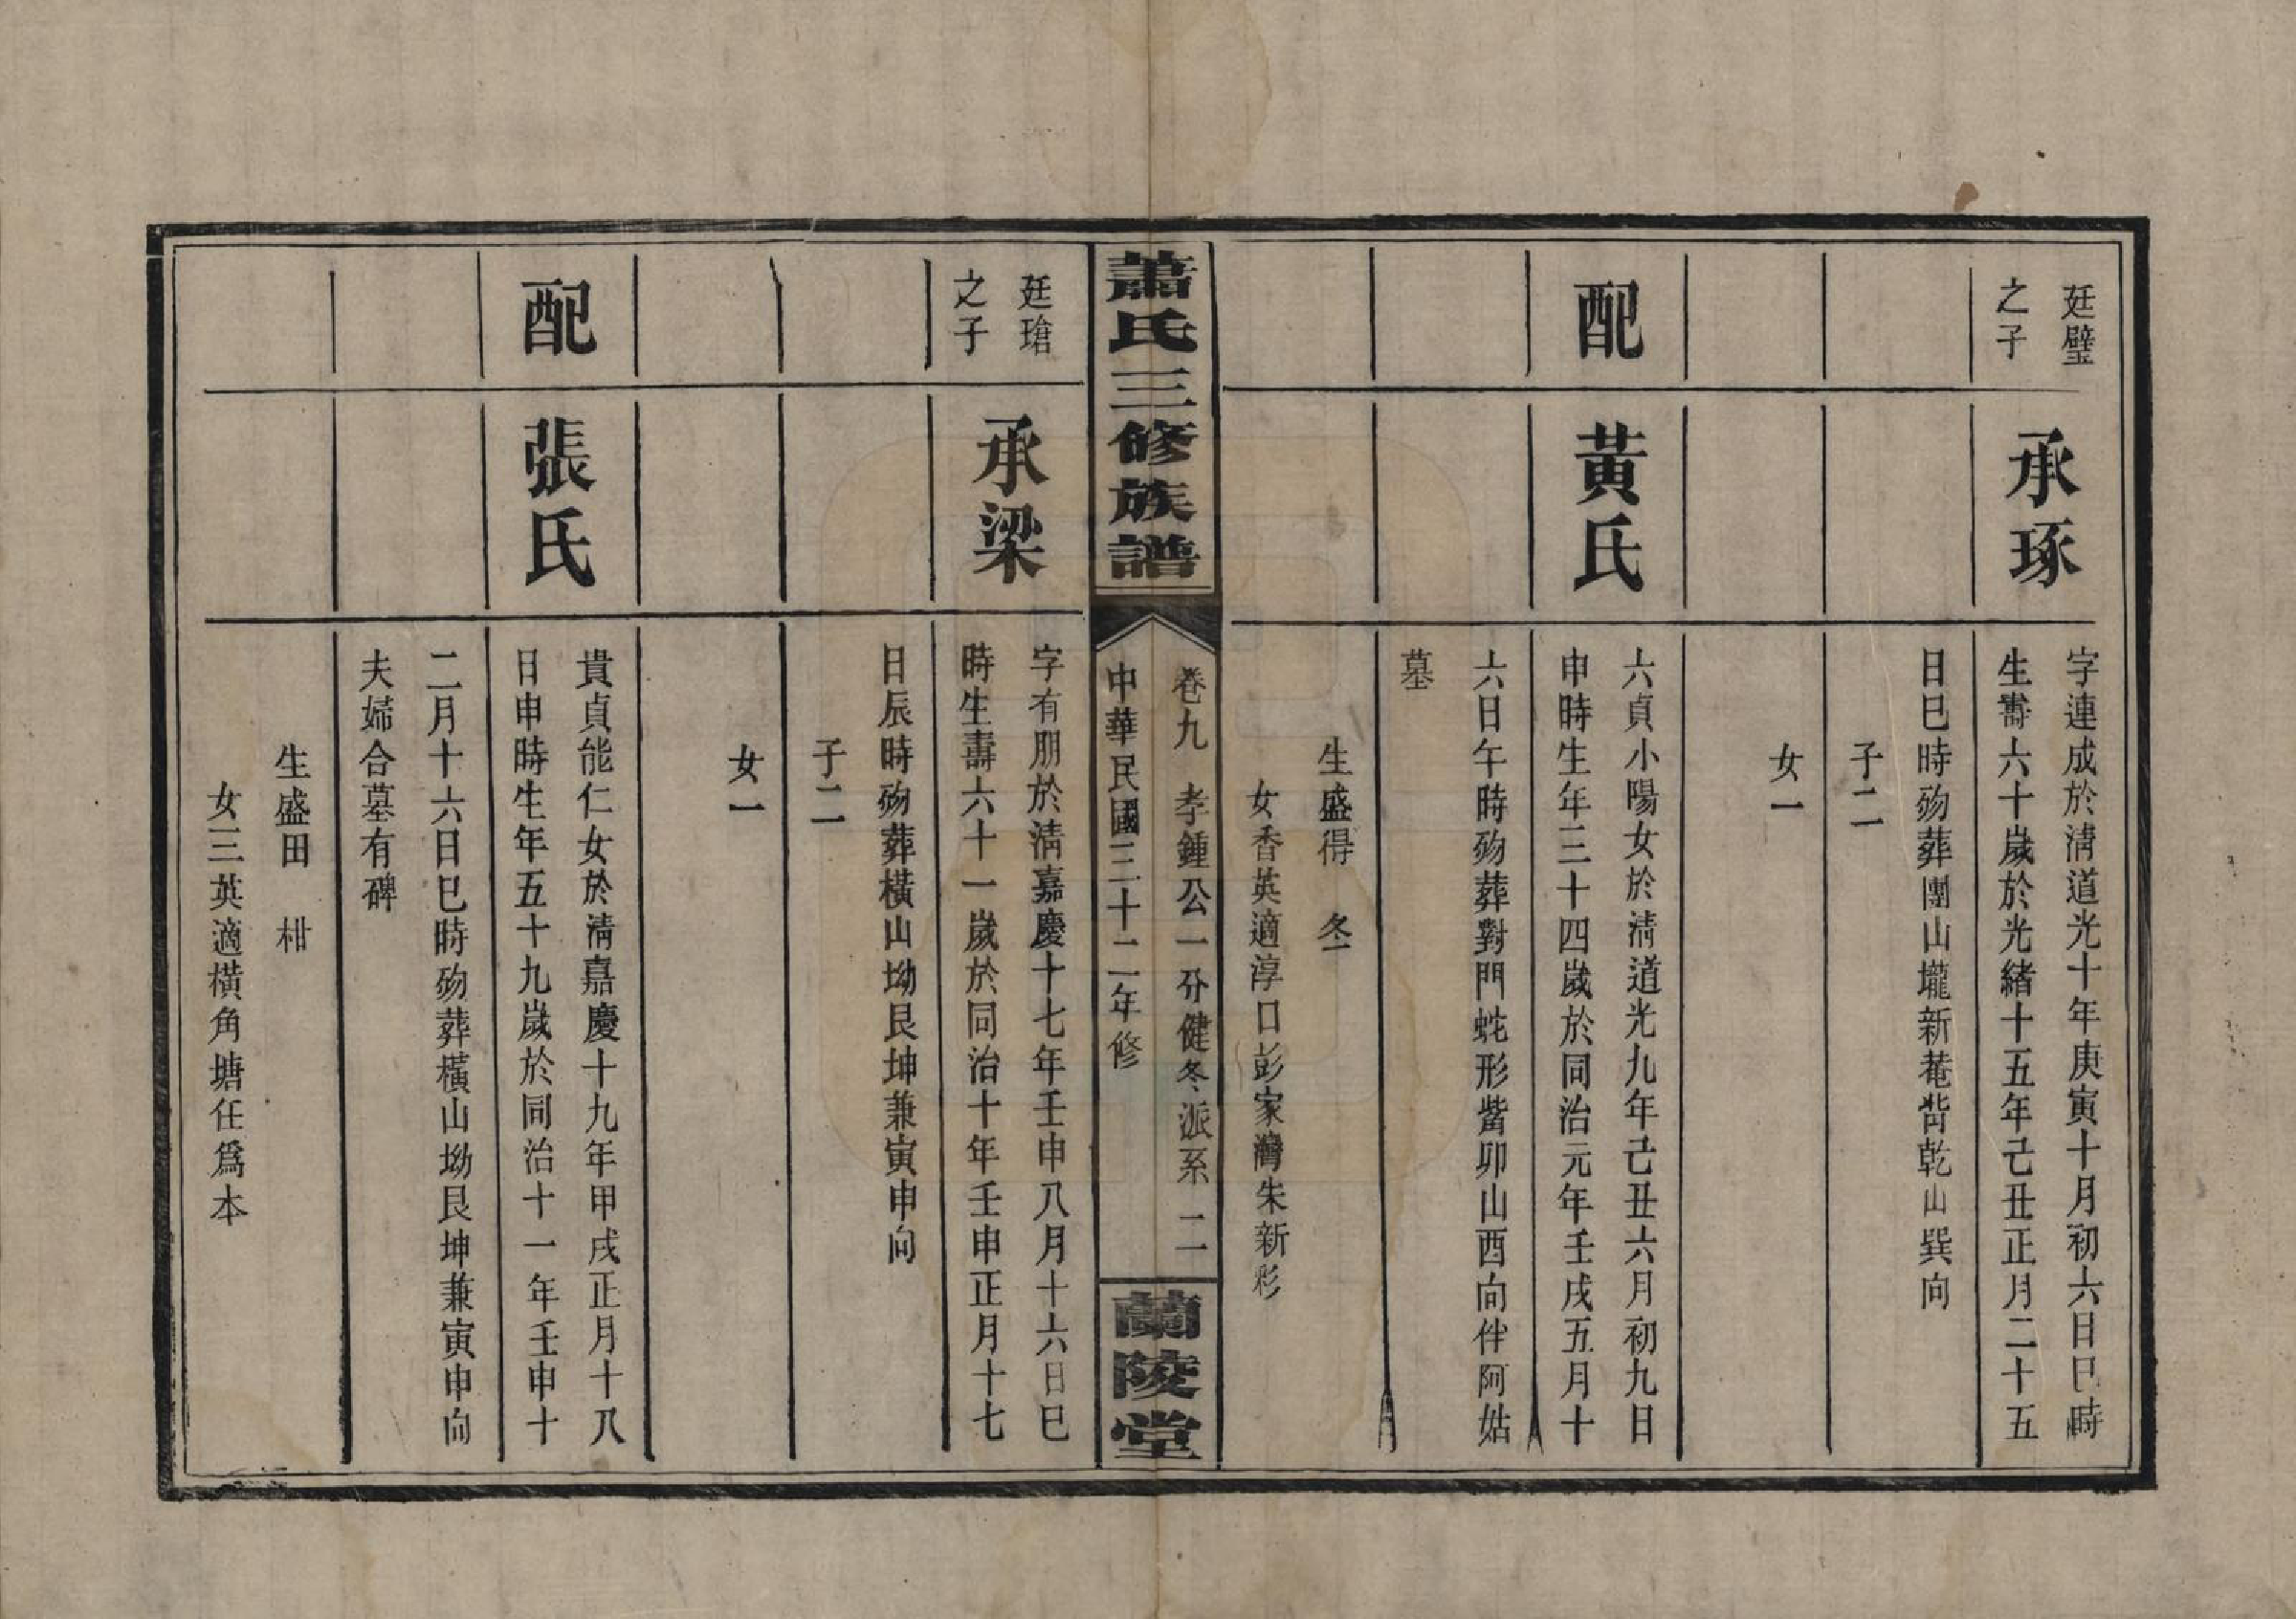 廷璧
之子
承琢
字連成於淸道光十年庚寅十月初六日巳時
生壽六十歲於光緖十五年己丑正月二十五
日巳時歿葬團山壠新菴背乾山巽向
子二
女一
配
黃氏
六貞小陽女於淸道光九年己丑六月初九日
申時生年三十四歲於同治元年壬戌五月十
六日午時歿葬對門蛇形嘴卯山酉向伴阿姑
墓
生盛得 冬
女香英適淳口彭家灣朱新彩
蕭氏三修族譜
卷九 孝鍾公一分健冬派系 二
中華民國三十二年修
蘭陵堂
廷瑲
之子
承梁
字有朋於淸嘉慶十七年壬申八月十六日巳
時生壽六十一歲於同治十年壬申正月十七
日辰時歿葬橫山坳艮坤兼寅申向
子二
女一
配
張氏
貴貞能仁女於淸嘉慶十九年甲戌正月十八
日申時生年五十九歲於同治十一年壬申十
二月十六日巳時歿葬橫山坳艮坤兼寅申向
夫婦合墓有碑
生盛田 柑
女三英適橫角塘任爲本